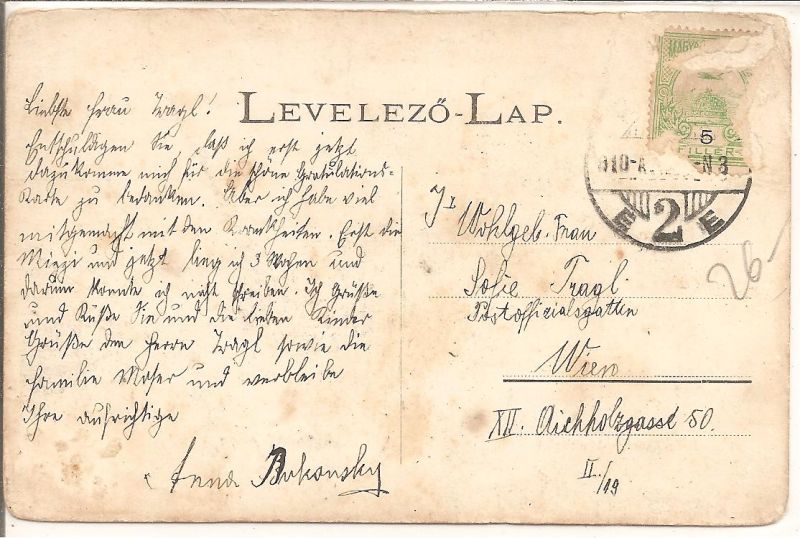 LEVELEZŐ-LAP.
Liebste Frau Tragl!
Entschuldigen Sie daß ich erst jetzt
dazukomme mich für die schöne Gratulations-
Karte zu bedanken. Aber ich habe viel
mitgemacht mit den Krankheiten. Erst die
Miezi und jetzt lieg ich 3 Wochen und
darum konnte ich nicht schreiben. Ich Grüße
und Küße Sie und die lieben Kinder
Grüße den Herrn Tragl sowie die
Familie Moser und verbleibe
Ihre aufrichtige
Anna
MAGYAR
5
FILLER
910-
N 3
E 2 E
26-
Wohlgeb. Frau
Sofie Tragl
Postoffizialsgattin
Wien
XII. Aichholzgasse 50.
II/19